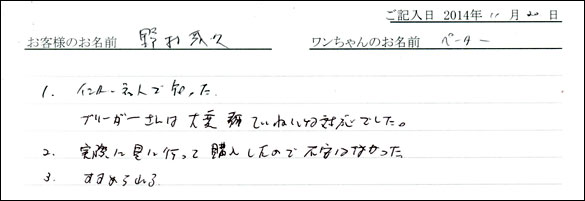 ご記入日 2014年 11月 20日
お客様のお名前 野村 ワンちゃんのお名前 ペーター
1. インターネットで知った。
ブリーダーさんは大変 ていねいな対応でした。
2. 実際に見に行って購入したので不安はなかった
3. すすめられる